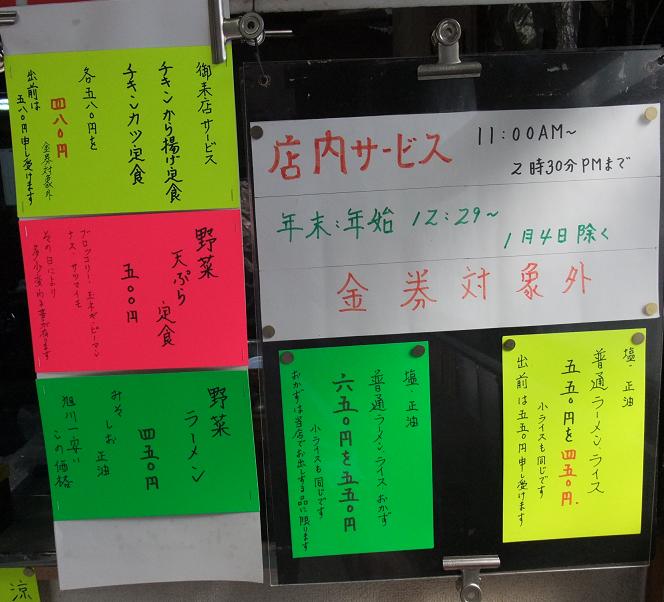 御来店サービス
チキンから揚げ定食
チキンカツ定食
各五八〇円を
四八〇円
金券対象外
出前は
五八〇円申し受けます
野菜
天ぷら定食
五〇〇円
ブロッコリー・玉ネギ・ピーマン
ナス・サツマイモ
その日により
多少変わる事が有ります
野菜
ラーメン
四五〇円
みそ しお 正油
旭川一安い
この価格
店内サービス
11:00AM～
2時30分PMまで
年末:年始 12:29～
1月4日除く
金券対象外
塩 正油
普通ラーメン ライス おかず
六五〇円を五五〇円
小ライスも同じです
おかずは当店でお出しする品に限ります
塩・正油
普通ラーメン ライス
五五〇円を四五〇円.
小ライスも同じです
出前は五五〇円申し受けます
涼